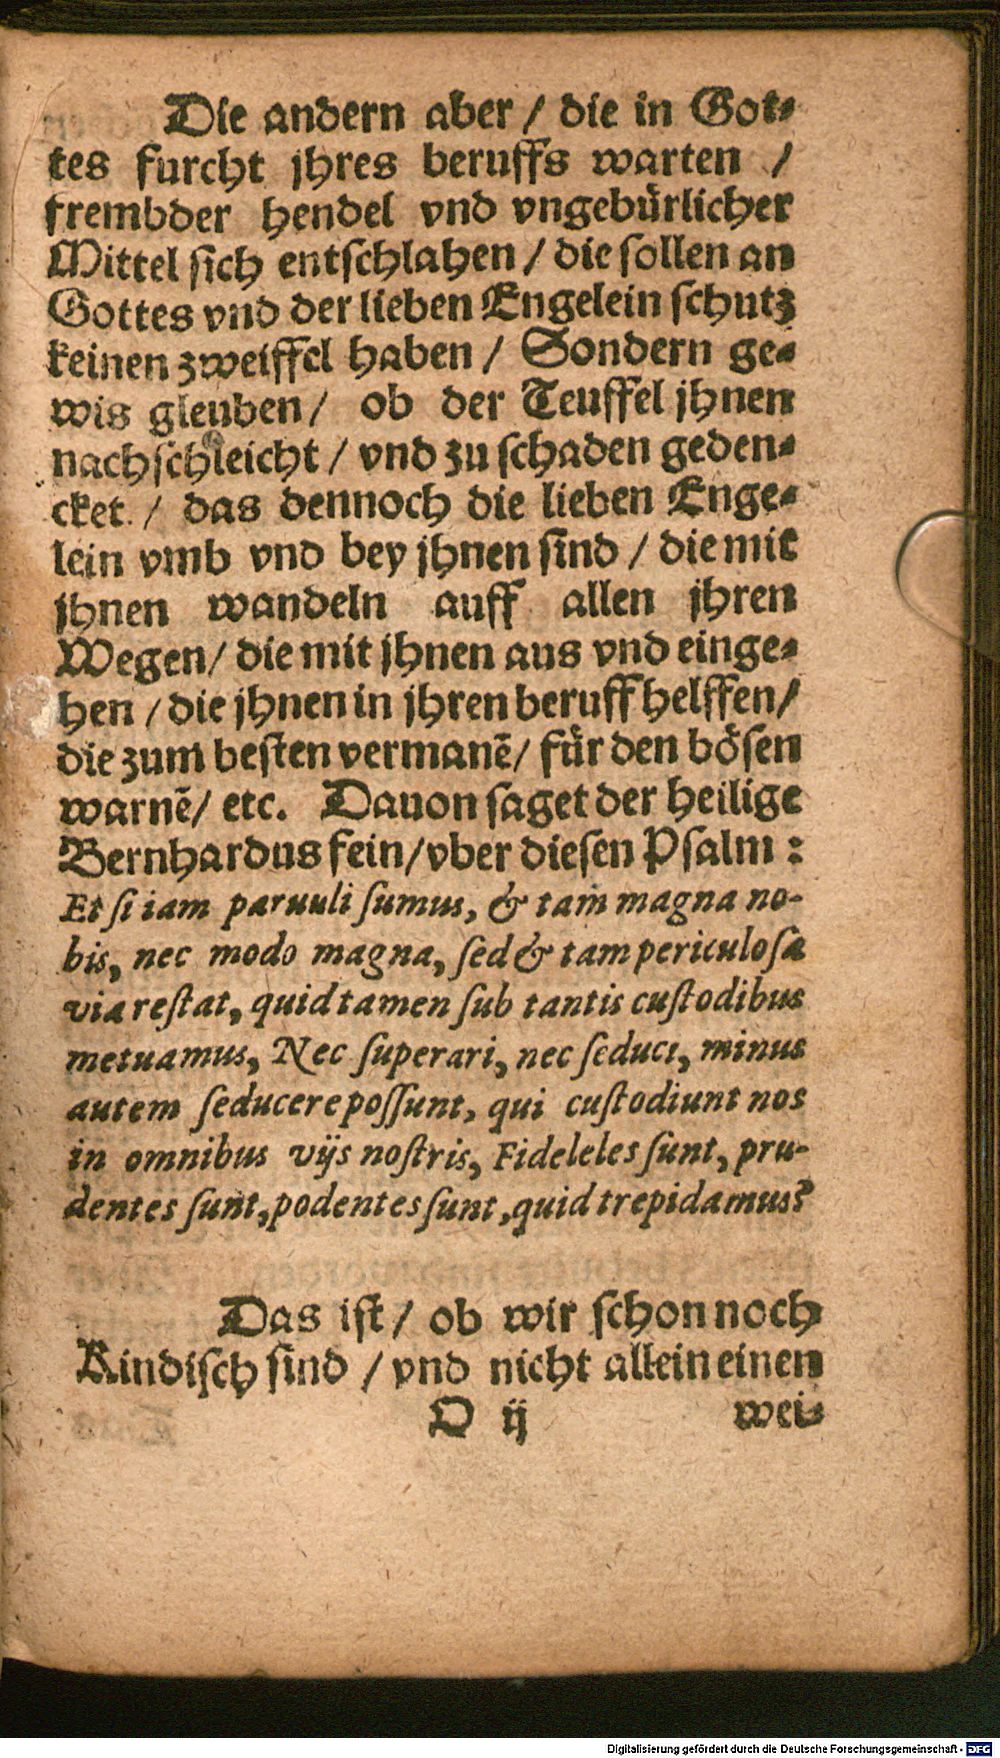 Die andern aber / die in Got⸗
tes furcht jhres beruffs warten /
frembder hendel vnd vngebürlicher
Mittel sich entschlahen / die sollen an
Gottes vnd der lieben Engelein schutz
keinen zweiffel haben / Sondern ge⸗
wis gleuben / ob der Teuffel jhnen
nachschleicht / vnd zu schaden geden⸗
cket / das dennoch die lieben Enge⸗
lein vmb vnd bey jhnen sind / die mit
jhnen wandeln auff allen jhren
Wegen / die mit jhnen aus vnd einge⸗
hen / die jhnen in jhren beruff helffen /
die zum besten vermanē / für den bösen
warnē / etc. Dauon saget der heilige
Bernhardus fein / vber diesen Psalm :
Et si iam paruuli sumus, & tam magna no-
bis, nec modo magna, sed & tam periculosa
via restat, quid tamen sub tantis custodibus
metuamus, Nec superari, nec seduci, minus
autem seducere possunt, qui custodiunt nos
in omnibus vijs nostris, Fideleles sunt, pru-
dentes sunt, podentes sunt, quid trepidamus?
Das ist / ob wir schon noch
Kindisch sind / vnd nicht allein einen
D ij wei⸗
Digitalisierung gefördert durch die Deutsche Forschungsgemeinschaft - DFG